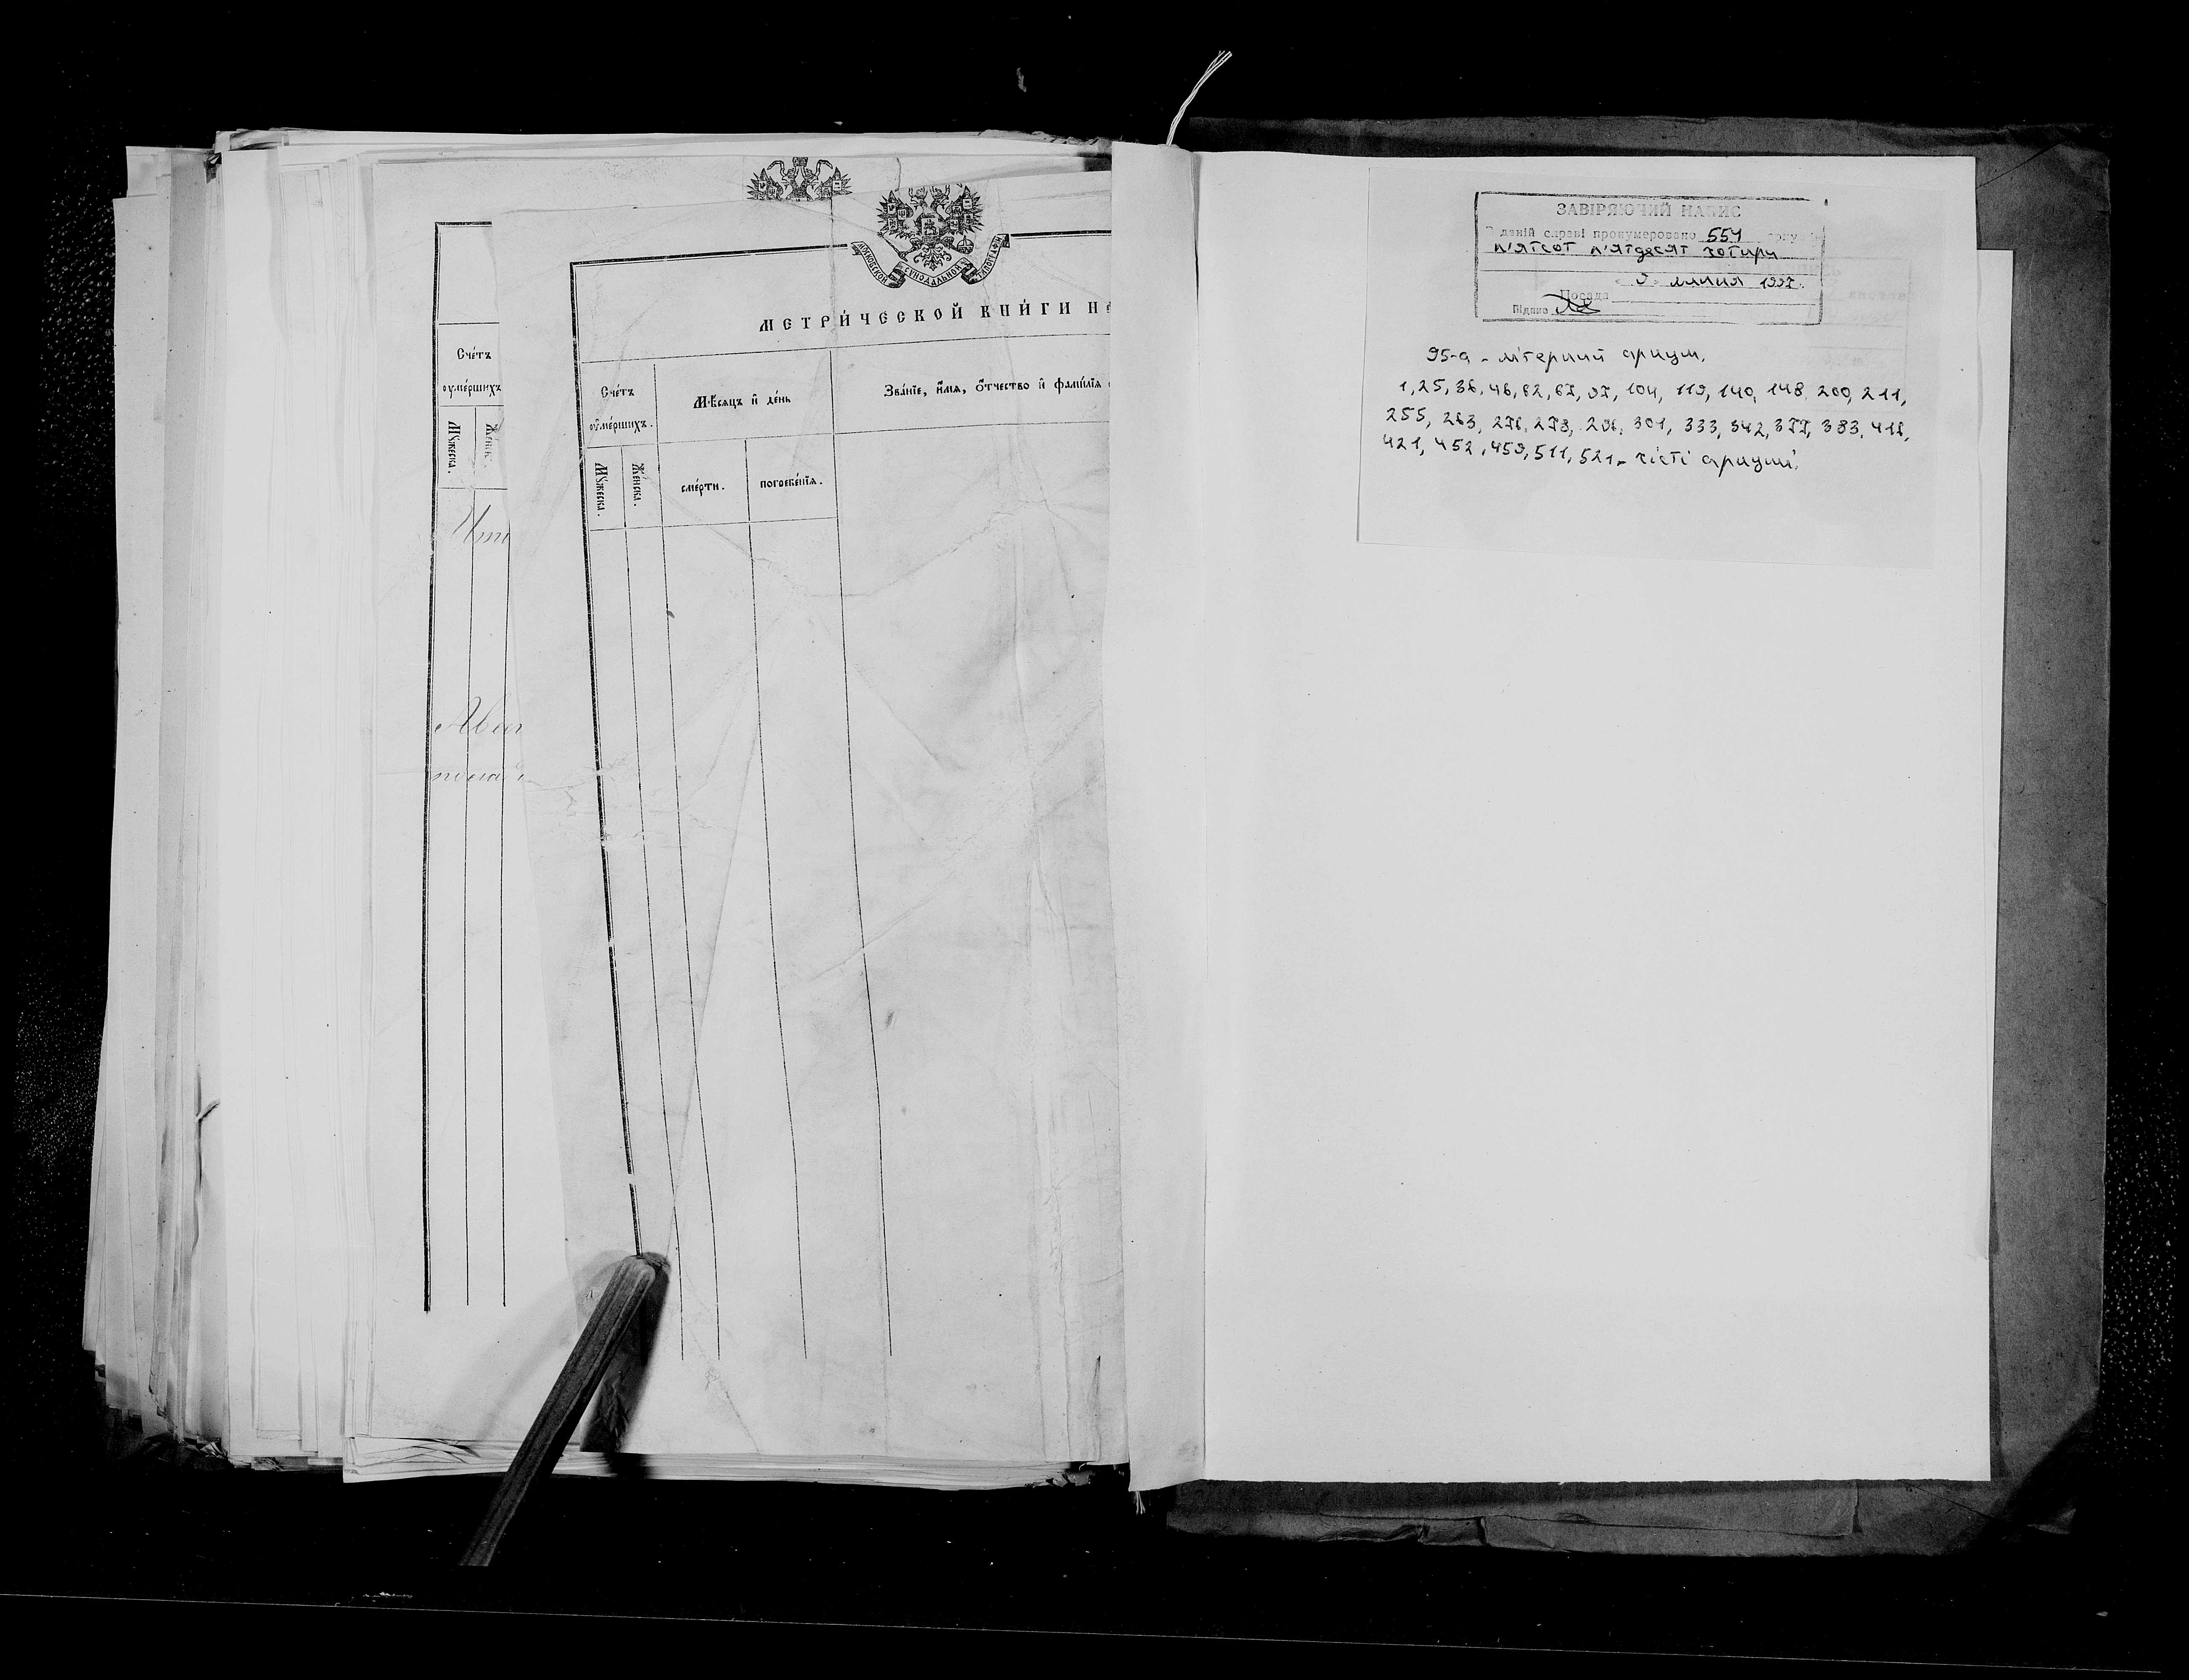 Сче́тъ
оу҆ме́ршихъ
Мꙋ́жеска.
Же́нска.
Ито
Авгу
МОСКОВСКОЙ СѴНОДАЛЬНОЙ ТИПОГРАФІИ
МЕТРИ́ЧЕСКОЙ КНИ́ГИ НА
Сче́тъ
оу҆ме́ршихъ.
Мꙋ́жеска.
Же́нска.
Мѣ́сяцъ и҆ де́нь
сме́рти.
погребе́нїѧ.
Зва́нїе, и҆́мѧ, ѻ҆́тчество и҆ фамѝлїѧ
ЗАВІРЯЮЧИЙ НАПИС
В даній справі пронумеровано 554 арку
п'ятсот п'ятдесят чотири
9 липня 1997.
Посада
Підпис
95-а - літерний аркуш.
1, 25, 36, 46, 62, 67, 97, 104, 119, 140, 148, 200, 211,
255, 263, 276, 278, 296, 301, 333, 342, 377, 383, 416,
421, 452, 459, 511, 521 - чисті аркуші.